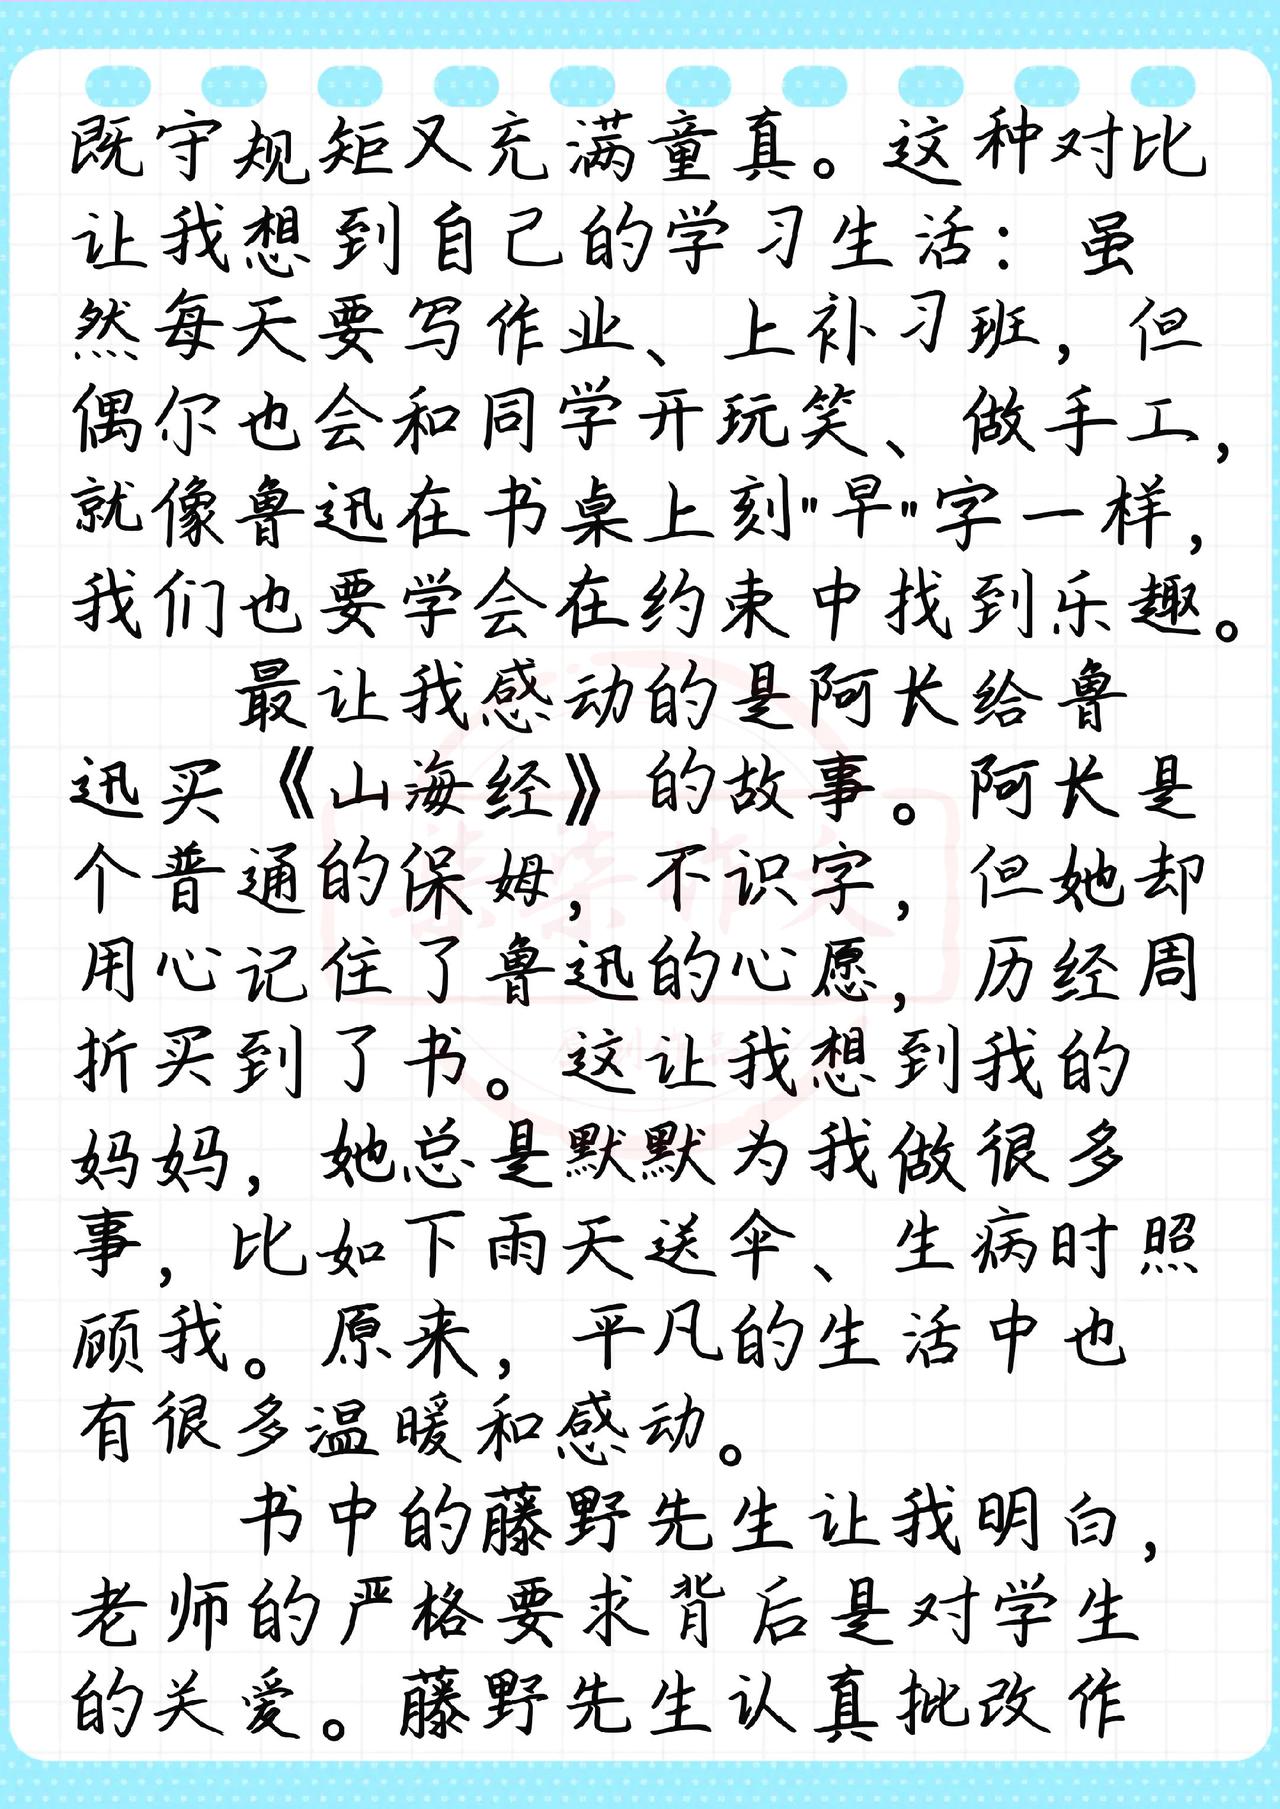 既守规矩又充满童真。这种对比
让我想到自己的学习生活：虽
然每天要写作业、上补习班，但
偶尔也会和同学开玩笑、做手工，
就像鲁迅在书桌上刻"早"字一样，
我们也要学会在约束中找到乐趣。
最让我感动的是阿长给鲁
迅买《山海经》的故事。阿长是
个普通的保姆，不识字，但她却
用心记住了鲁迅的心愿，历经周
折买到了书。这让我想到我的
妈妈，她总是默默为我做很多
事，比如下雨天送伞、生病时照
顾我。原来，平凡的生活中也
有很多温暖和感动。
书中的藤野先生让我明白，
老师的严格要求背后是对学生
的关爱。藤野先生认真批改作